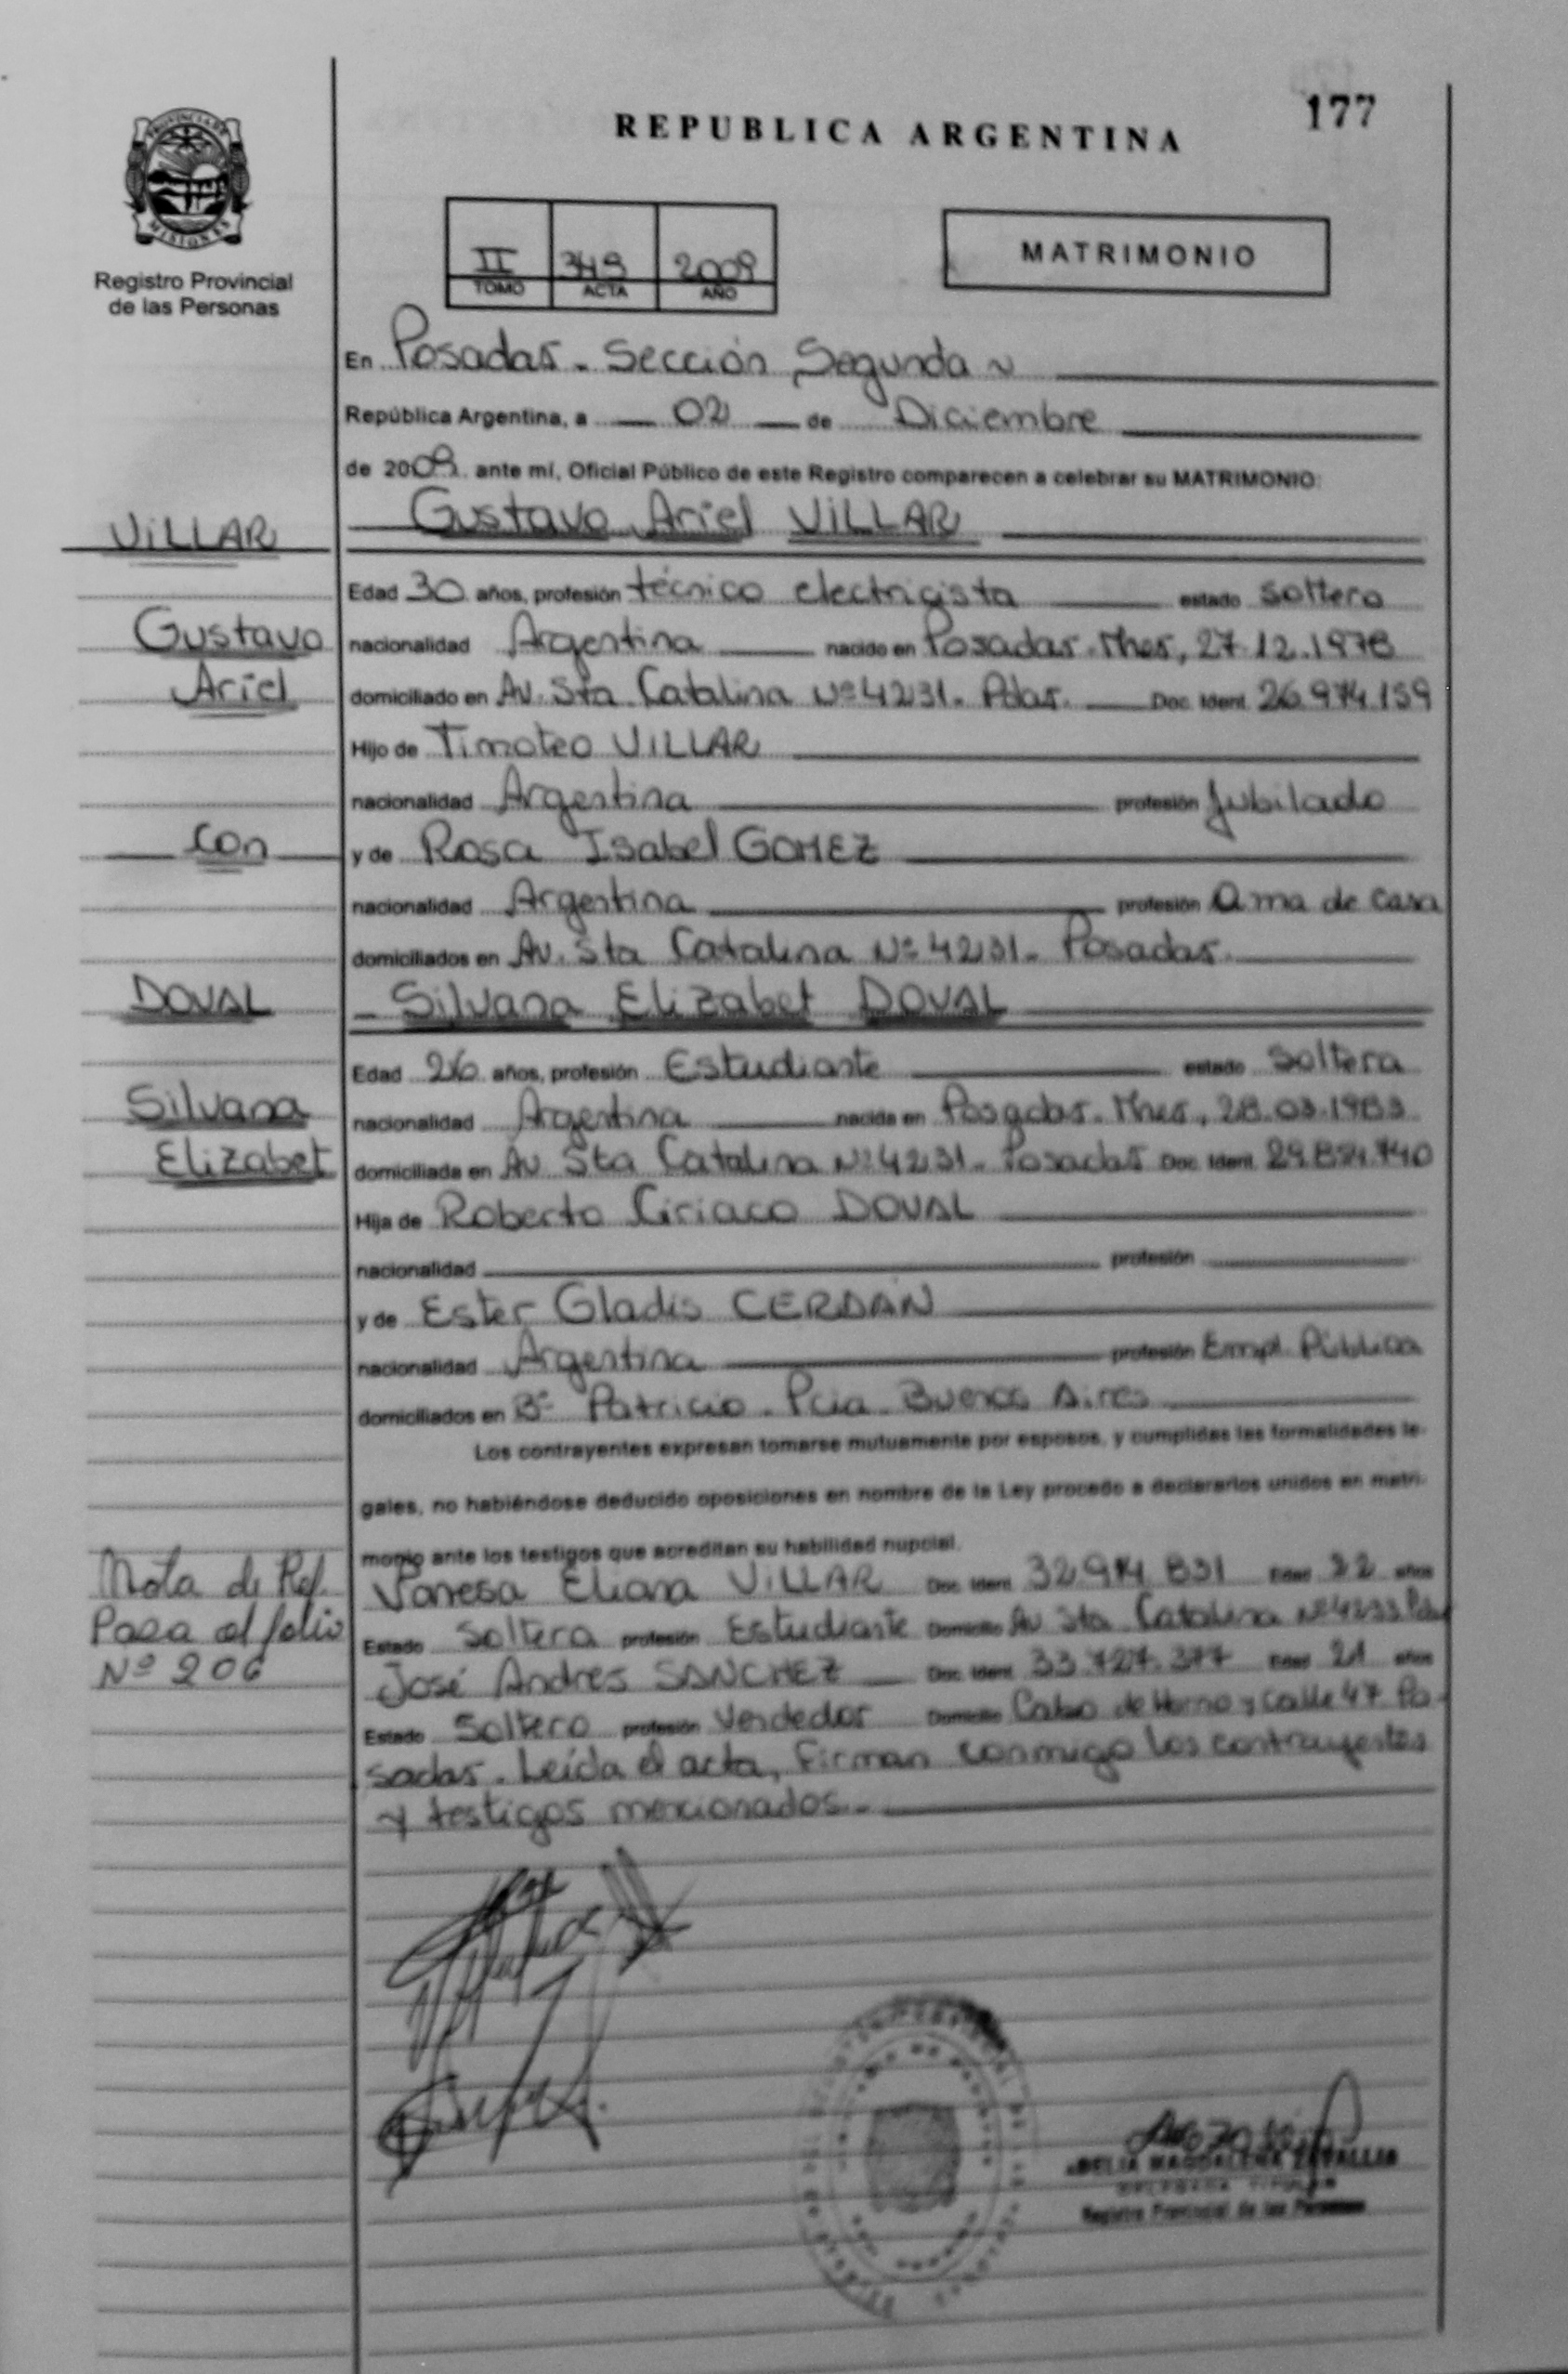 177
REPUBLICA ARGENTINA
PROVINCIA DE
MISIONES
Registro Provincial
de las Personas
II 349 2009
TOMO ACTA AÑO
MATRIMONIO
En Posadas - Sección Segunda
República Argentina, a 02 de Diciembre
de 2009 ante mí, Oficial Público de este Registro comparecen a celebrar su MATRIMONIO:
Gustavo Ariel VILLAR
VILLAR
Edad 30 años, profesión técnico electricista estado soltero
Gustavo
nacionalidad Argentina nacido en Posadas - Mnes, 27.12.1978
Ariel
domiciliado en Av. Sta Catalina Nº 4231 - Pdas. Doc. Ident. 26.974.159
Hijo de Timoteo VILLAR
nacionalidad Argentina profesión Jubilado
con
y de Rosa Isabel GOMEZ
nacionalidad Argentina profesión Ama de casa
domiciliados en Av. Sta Catalina Nº 4231 - Posadas.
DOVAL
Silvana Elizabet DOVAL
Edad 26 años, profesión Estudiante estado Soltera
Silvana
nacionalidad Argentina nacida en Posadas - Mnes, 28.03.1983
Elizabet
domiciliada en Av Sta Catalina Nº 4231 - Posadas Doc. Ident.
Hija de Roberto Ciriaco DOVAL
nacionalidad profesión
y de Ester Gladis CERDAN
nacionalidad Argentina profesión Empl. Pública
domiciliados en Bº Patricio - Pcia - Buenos Aires
Los contrayentes expresan tomarse mutuamente por esposos, y cumplidas las formalidades le-
gales, no habiéndose deducido oposiciones en nombre de la Ley procedo a declararlos unidos en matri-
monio ante los testigos que acreditan su habilidad nupcial.
Nota de Ref.
Para el folio
Nº 206
Vanesa Eliana VILLAR Doc. Ident. 32.974.831 Edad 22 años
Estado Soltera profesión Estudiante Domicilio Av Sta Catalina Nº 4233 Pdas
José Andres SANCHEZ Doc. Ident. 33.727.377 Edad 21 años
Estado Soltero profesión Vendedor Domicilio Cabo de Horno y Calle 47 Po-
sadas. Leída el acta, Firman conmigo los contrayentes
y testigos mencionados.-
DELIA MAGDALENA
DELEGADA TITULAR
Registro Provincial de las Personas